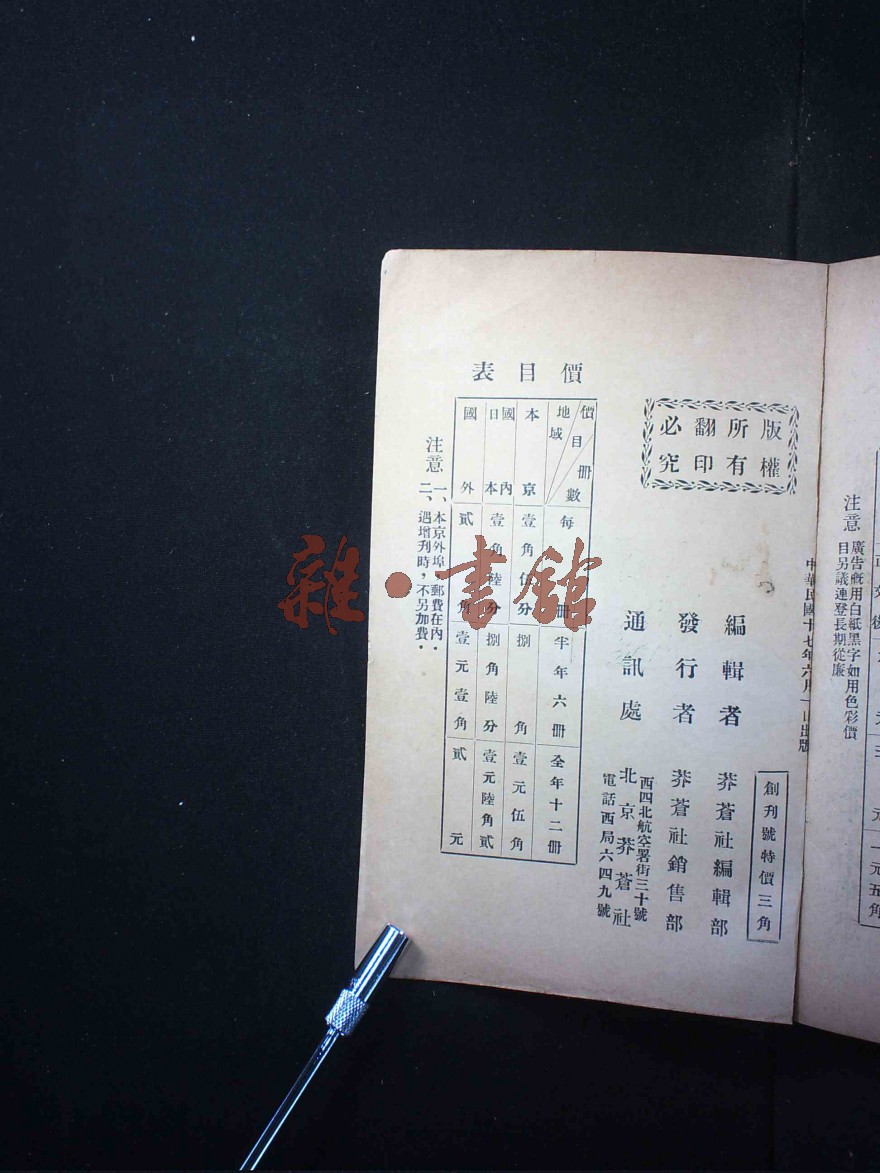 注意
廣告概用白紙黑字如用色彩價
目另議連登長期從廉
中華民國十七年六月一日出版
版權
所有
翻印
必究
創刊號特價三角
編輯者 莽蒼社編輯部
發行者 莽蒼社銷售部
通訊處 北京莽蒼社
西四北航空署街三十號
電話西局六四九號
價目表
價目 冊數 地域
每冊
半年六冊
全年十二冊
本京
壹角伍分
捌角
壹元伍角
國內
日本
壹角陸分
捌角陸分
壹元陸角貳
國外
貳角
壹元壹角
貳元
注意
一、本京外埠，郵費在內．
二、遇增刋時，不另加費．
雜·書館